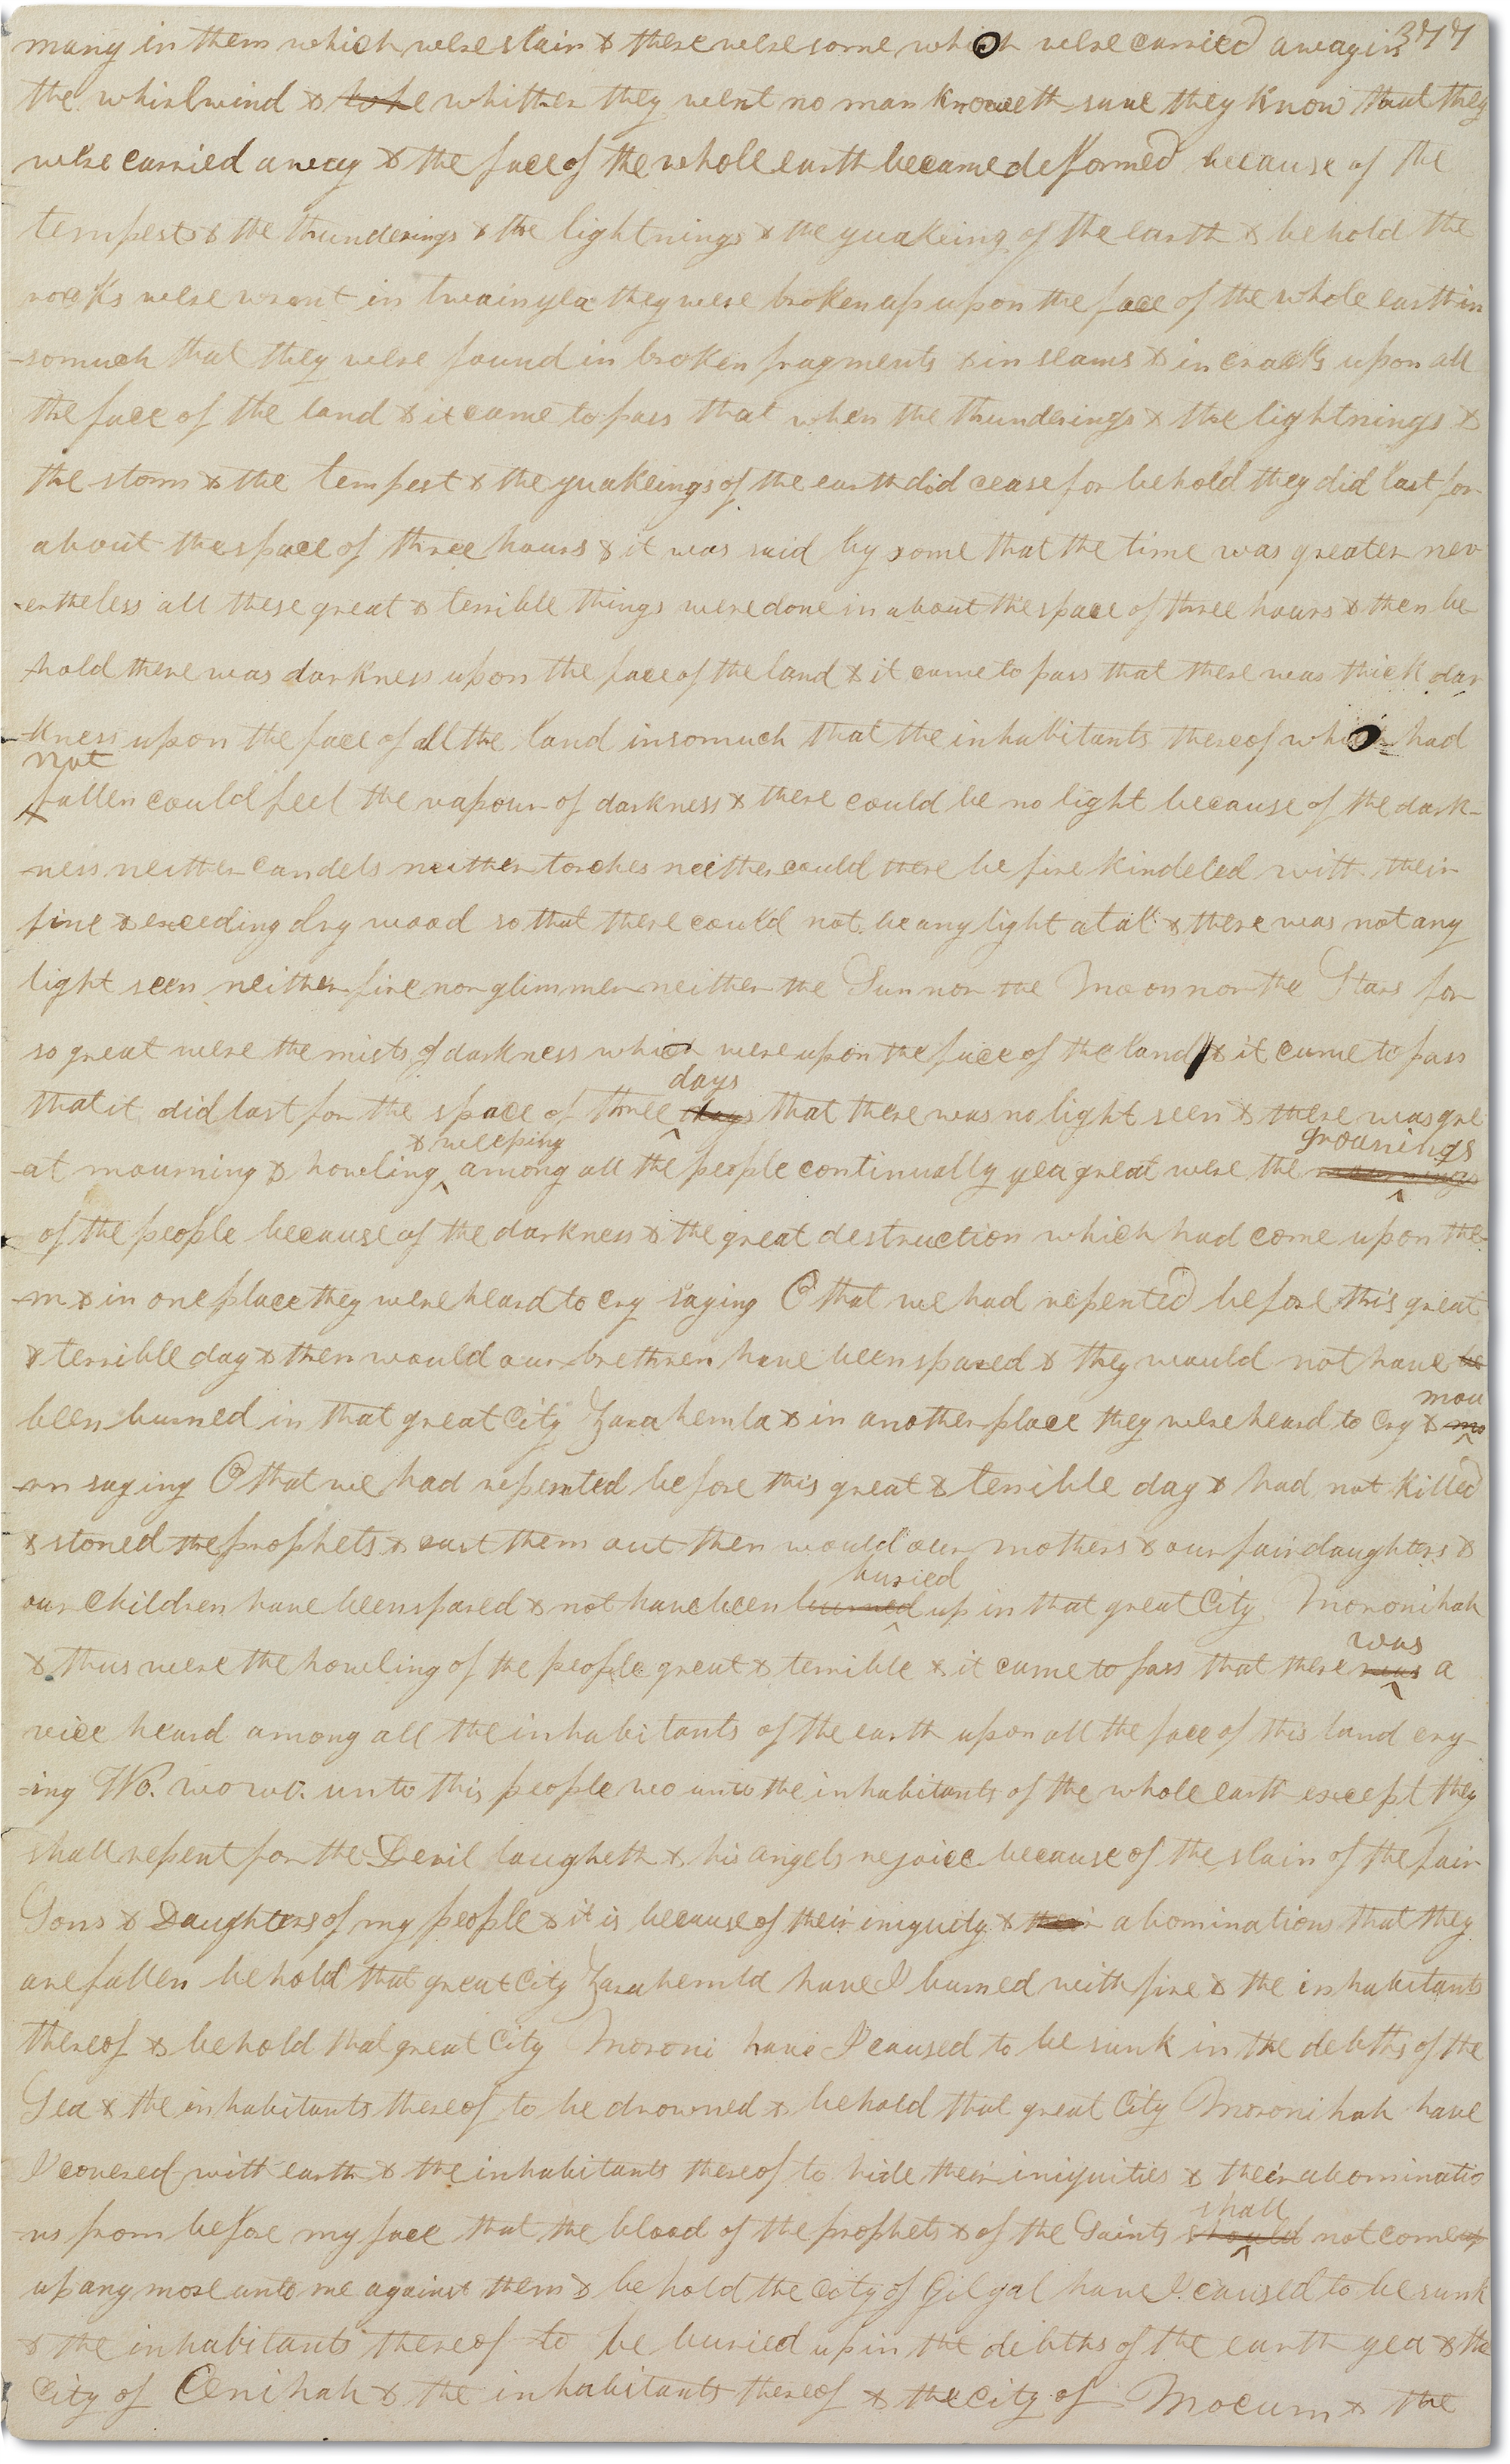 377
many in them which were slain & there were some which were carried away in
the whirlwind & whither they went no man knoweth save they know that they
were carried away & the face of the whole earth became deformed because of the
tempests & the thunderings & the lightnings & the quakeing of the earth & behold the
rocks were wrent in twain yea they were broken up upon the face of the whole earth in
-somuch that they were found in broken fragments & in seams & in cracks upon all
the face of the land & it came to pass that when the thunderings & the lightnings &
the storm & the tempest & the quakeings of the earth did cease for behold they did last for
about the space of three hours & it was said by some that the time was greater nev
-ertheless all these great & terrible things were done in about the space of three hours & then be
-hold there was darkness upon the face of the land & it came to pass that there was thick dar
-kness upon the face of all the land insomuch that the inhabitants thereof which had
not
fallen could feel the vapour of darkness & there could be no light because of the dark-
-ness neither candels neither torches neither could there be fire kindeled with their
fine & exceeding dry wood so that there could not be any light at all & there was not any
light seen neither fire nor glimmer neither the Sun nor the Moon nor the Stars for
so great were the mists of darkness which were upon the face of the land & it came to pass
days
that it did last for the space of three days that there was no light seen & there was gre
& weeping groanings
-at mourning & howling among all the people continually yea great were the
of the people because of the darkness & the great destruction which had come upon the-
-m & in one place they were heard to cry saying O that we had repented before this great
& terrible day & then would our brethren have been spared & they would not have be
mou
been burned in that great City Zarahemla & in another place they were heard to cry & mo
-rn saying O that we had repented before this great & terrible day & had not killed
& stoned the prophets & cast them out then would our mothers & our fair daughters &
buried
our Children have been spared & not have been burned up in that great City Moronihah
was
& thus were the howling of the people great & terrible & it came to pass that there was a
vice heard among all the inhabitants of the earth upon all the face of this land cry-
-ing Wo. wo wo. unto this people wo unto the inhabitants of the whole earth except they
shall repent for the Devil laugheth & his angels rejoice because of the slain of the fair
Sons & Daughters of my people & it is because of their iniquity & their abominations that they
are fallen behold that great City Zarahemla have I burned with fire & the inhabitants
thereof & behold that great City Moroni have I caused to be sunk in the debths of the
Sea & the inhabitants thereof to be drowned & behold that great City Moronihah have
I covered with earth & the inhabitants thereof to hide their iniquities & their abominatio
shall
-ns from before my face that the blood of the prophets & of the Saints should not come up
up any more unto me against them & behold the City of Gilgal have I caused to be sunk
& the inhabitants thereof to be buried up in the debths of the earth yea & the
City of Onihah & the inhabitants thereof & the City of Mocum & the